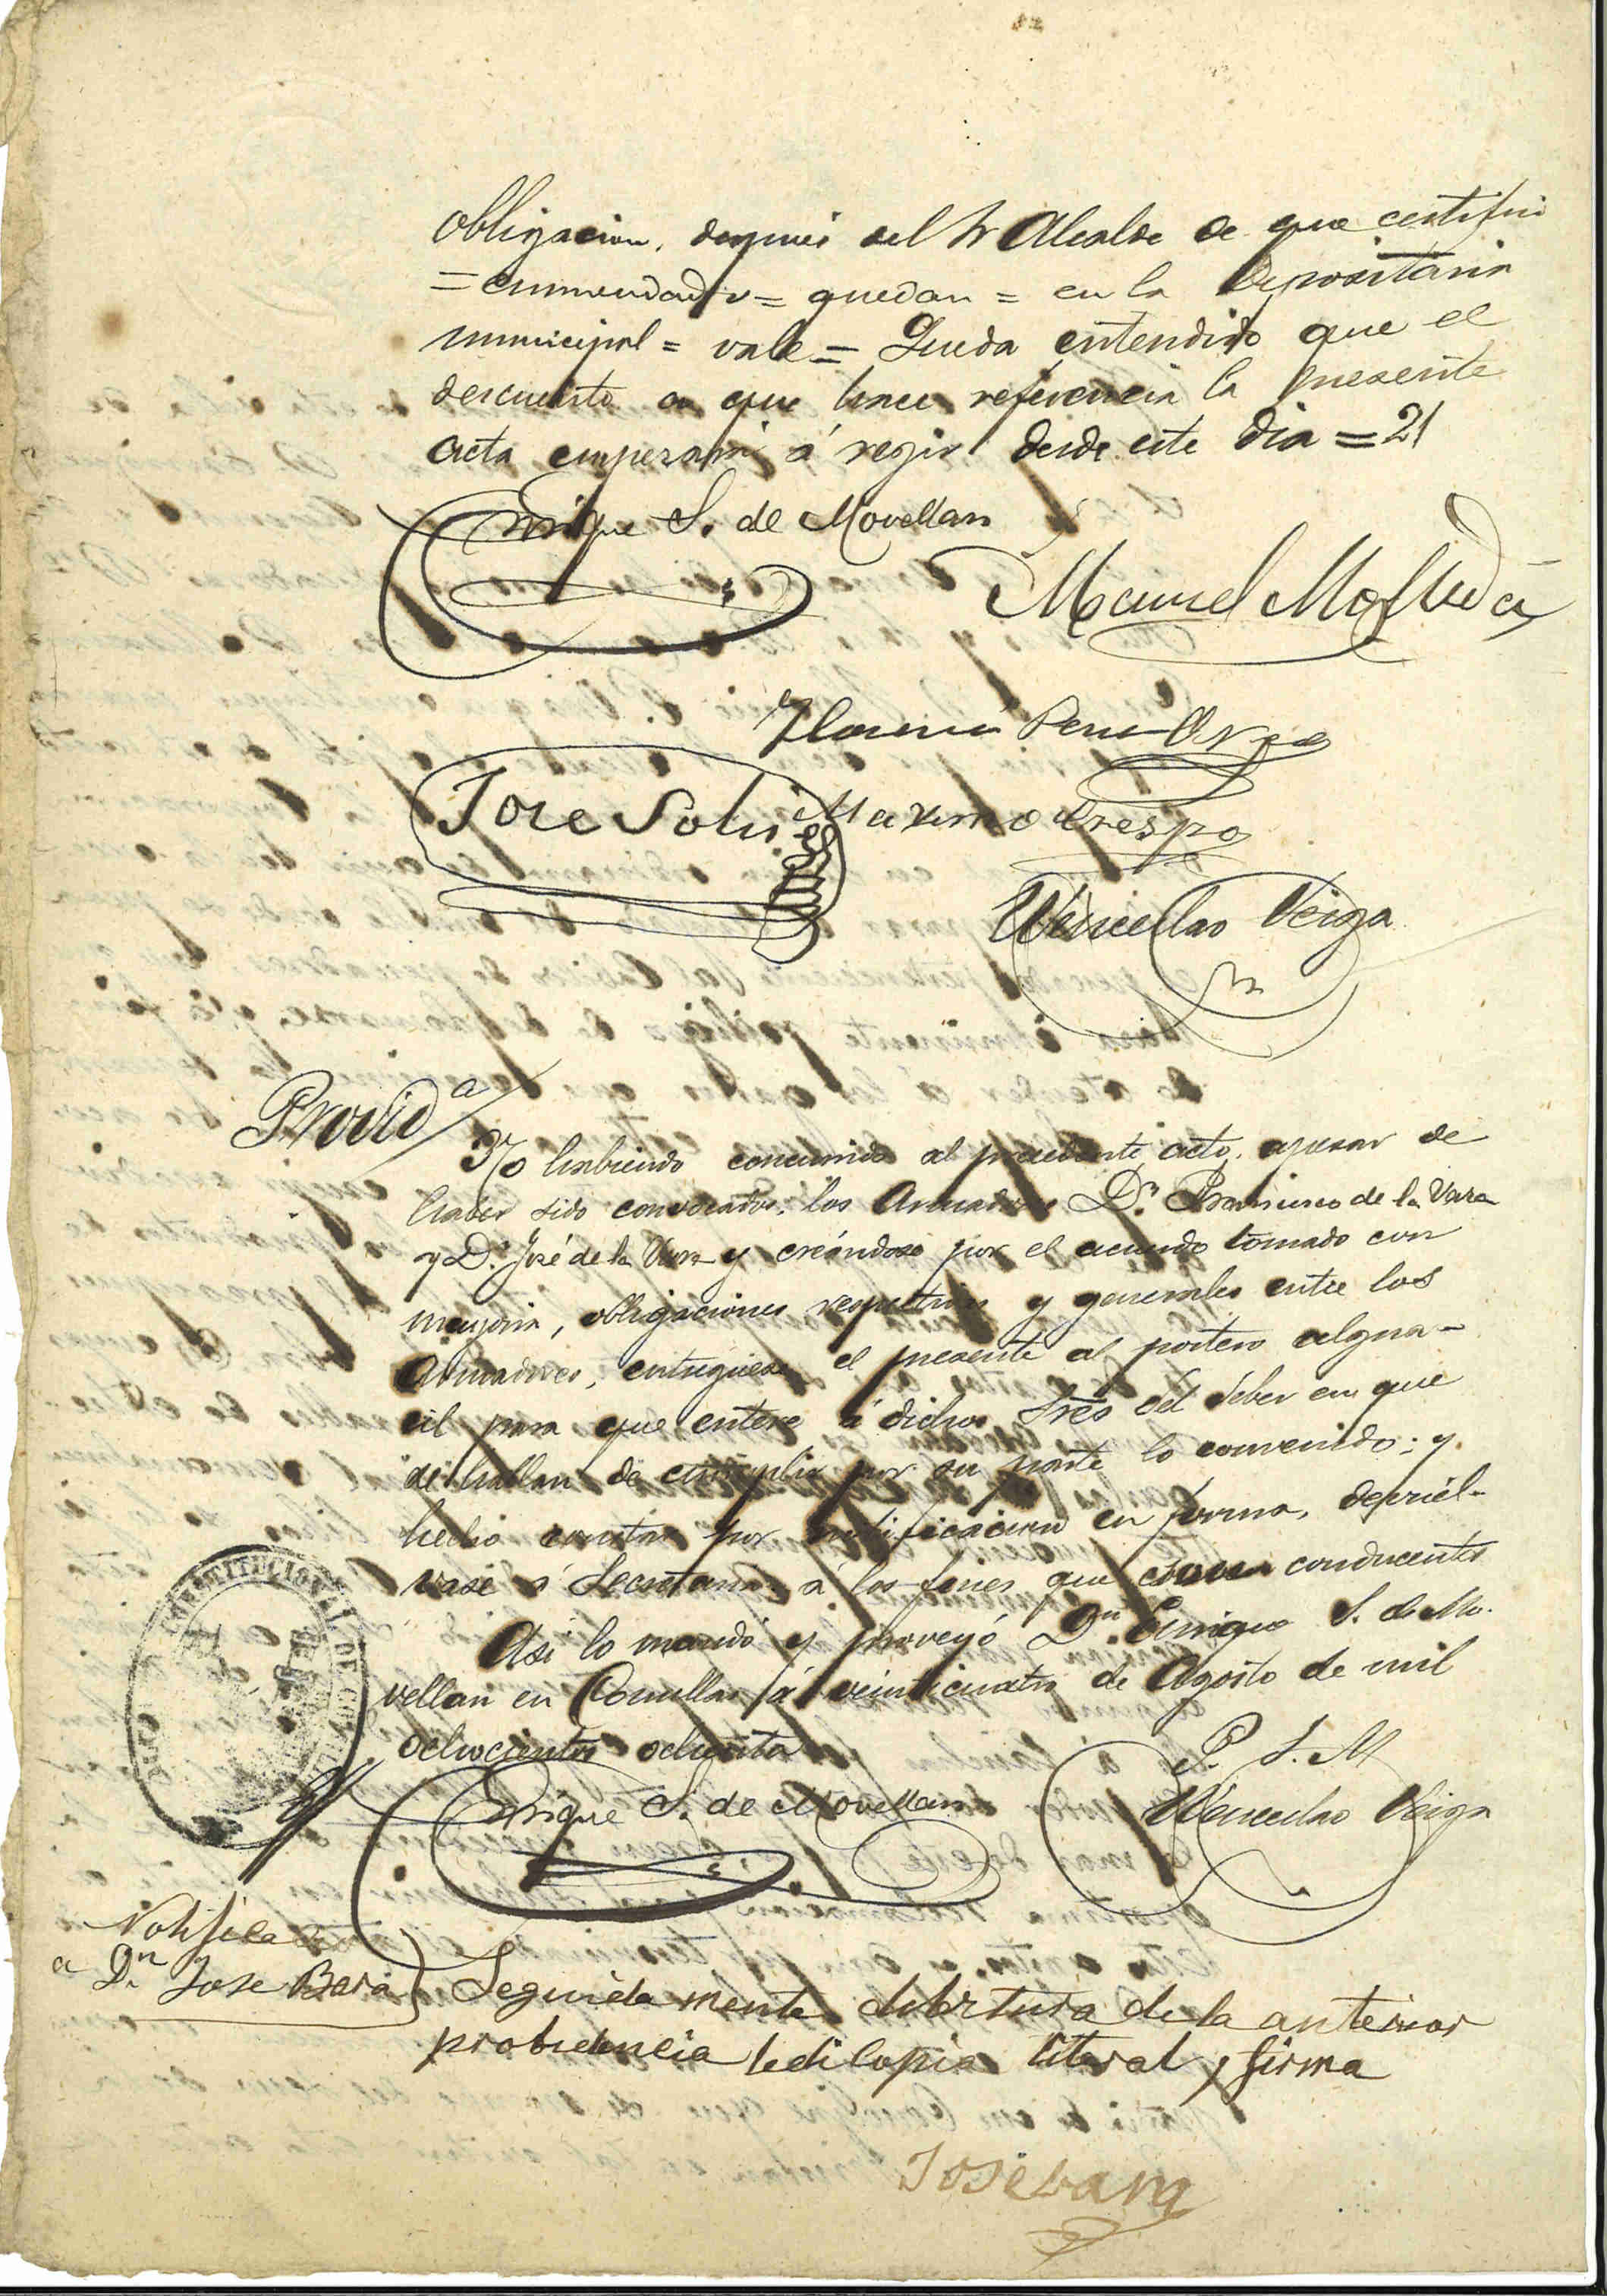 obligacion, despues del Sr Alcalde de que certifico
= enmendado = quedan = en la Depositaria
municipal = vale = Queda entendido que el
descuento a que hace referencia la presente
acta empezará á regir desde este dia = 21
Enrique S. de Movellan
Manuel Molleda
Pena
Jose Solis Maximo Crespo
Wenceslao Veiga
Provida
No habiendo concurrido al precedente acto, apesar de
haber sido convocados, los Armadores Dn. Francisco de la Vara
y D. José de la Vara y creándose por el acuerdo tomado con
mayoria, obligaciones respectivas y generales entre los
Armadores, entreguese el presente al portero algua-
cil para que entere á dichos Sres del deber en que
se hallan de cumplir por su parte lo convenido; y
hecho constar por notificacion en forma, devuel-
vase á Secretaria á los fines que sean conducentes
Asi lo mandó y proveyó Dn Enrique S. de Mo-
vellan en Comillas á veinticuatro de Agosto de mil
ochocientos ochenta
P. S. M
Enrique S. de Movellan Wenceslao Veiga
CONSTITUCIONAL DE COMILLAS
Notifica
a Dn Jose Bara
Seguidamente de la anterior
probidencia le di copia literal y firma
Jose bara